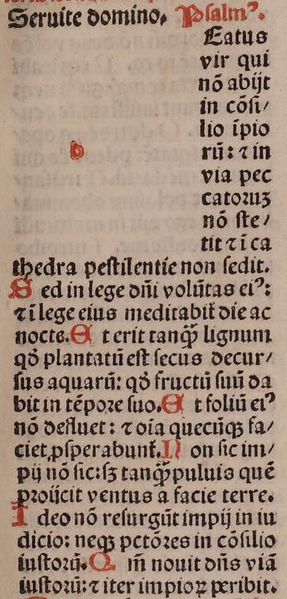 Seruite domino. Psalm⁹.
b
Eatus
vir qui
nō abijt
in cōsi/
lio īpio
rū: ⁊ in
via pec
catoruꝫ
nō ste/
tit ⁊ ī ca
thedra pestilentie non sedit.
S ed in lege dn̄i volūtas ei⁹:
⁊ ī lege eius meditabit̄ die ac
nocte. E t erit tanq̄ȝ lignum
qd̄ plantatū est secus decur/
sus aquarū: qd̄ fructū suū da
bit in tēpore suo. E t foliū ei⁹
nō defluet: ⁊ oīa quecūqȝ fa/
ciet, ꝓsperabunt̄. N on sic im/
pij nō sic: sȝ tanq̄ȝ puluis quē
ꝓijcit ventus a facie terre.
I deo nō resurgūt impij in iu
dicio: neqȝ pctōres in cōsilio
iustorū. Q m̄ nouit dn̄s viā
iustorū: ⁊ iter impioꝝ peribit.